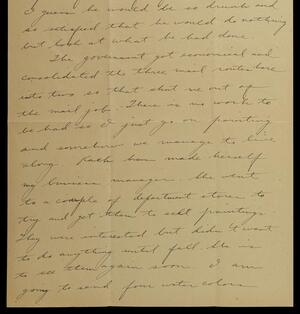 I guess he would be so drunk and
so satisfied that he would do nothing
but look at what he had done.
The government got economical and
consolidated the three mail routes here
into two so that shut me out of
the mail job. There is no work to
be had so I just go on painting
and somehow we manage to live
along. Kath has made herself
my business manager. She went
to a couple of department stores to
try and get them to sell paintings.
They were interested but didn't want
to do anything until fall. She is
to see them again soon. I am
going to send four water colors